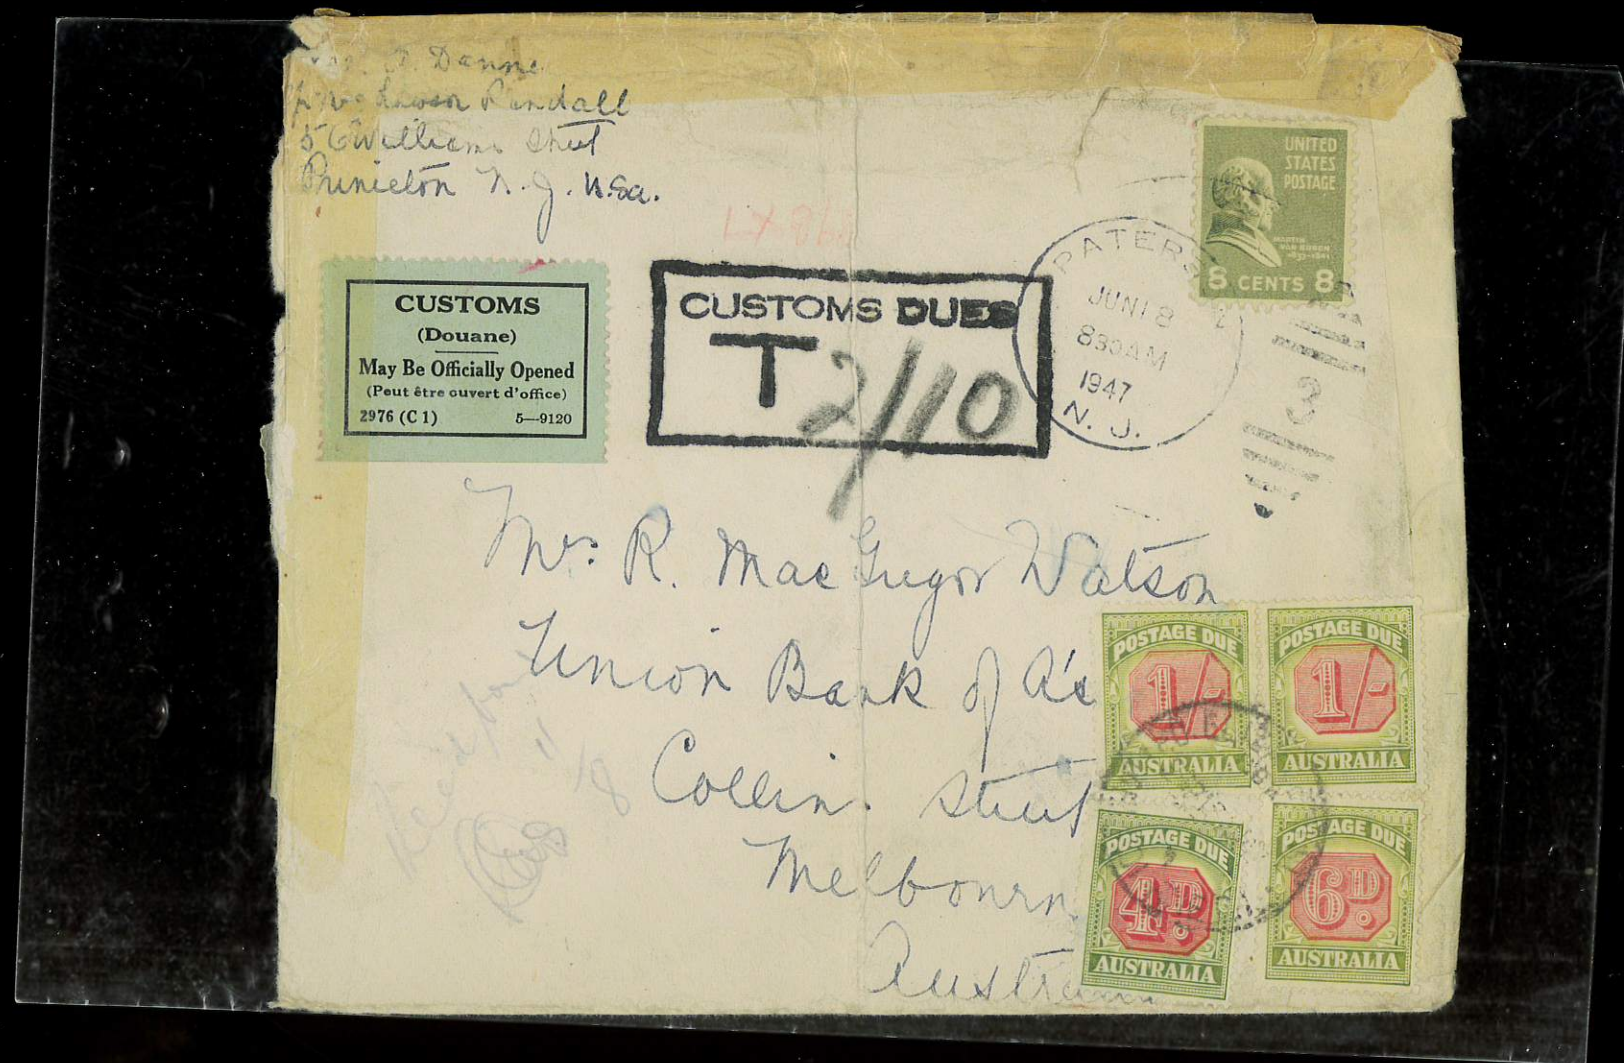 Danne
Lawson Randall
56 Williams Street
Princeton N.J. U.Sa.
UNITED
STATES
POSTAGE
MARTIN
VAN BUREN
1837-1841
8 CENTS 8
CUSTOMS
(Douane)
May Be Officially Opened
(Peut être ouvert d'office)
2976 (C 1) 5—9120
CUSTOMS DUES
T 2/10
PATERS
JUN 18
830AM
1947
N. J.
2
3
Mr. R. MacGregor Watson
Union Bank of A's
Collins Street
Melbourn
Austra
POSTAGE DUE
1/-
AUSTRALIA
POSTAGE DUE
1/-
AUSTRALIA
POSTAGE DUE
4D.
AUSTRALIA
POSTAGE DUE
6D.
AUSTRALIA